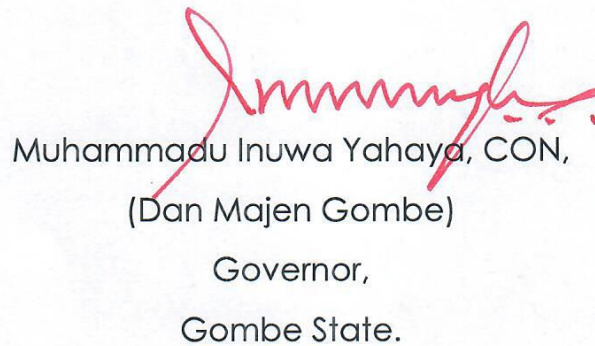 Muhammadu Inuwa Yahaya, CON,
(Dan Majen Gombe)
Governor,
Gombe State.